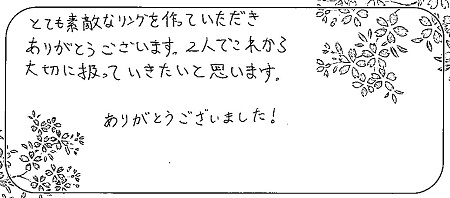 とても素敵なリングを作っていただき
ありがとうございます。2人でこれから
大切に扱っていきたいと思います。
ありがとうございました!